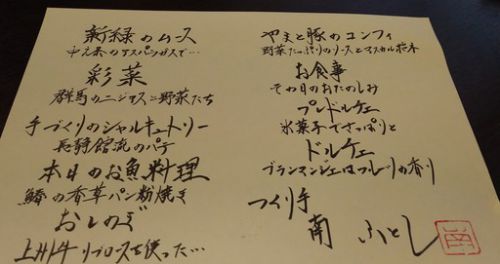 新緑のムース
中之条のアスパラガスで…
彩菜
群馬のニジマスと野菜たち
手づくりのシャルキュトリー
長静館流のパテ
本日のお魚料理
鰆の香草パン粉焼き
おしのぎ
上州牛リブロースを使った…
やまと豚のコンフィ
野菜たっぷりのソースとマスカル
お食事
その日のおたのしみ
プレドルチェ
氷菓子でさっぱりと
ドルチェ
ブランマンジェはフルーツの香り
つくり手
南 ふとし
南